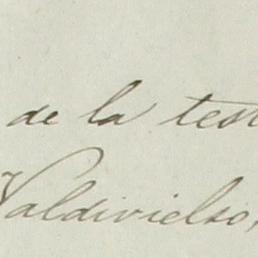 de la test
Valdivielso,